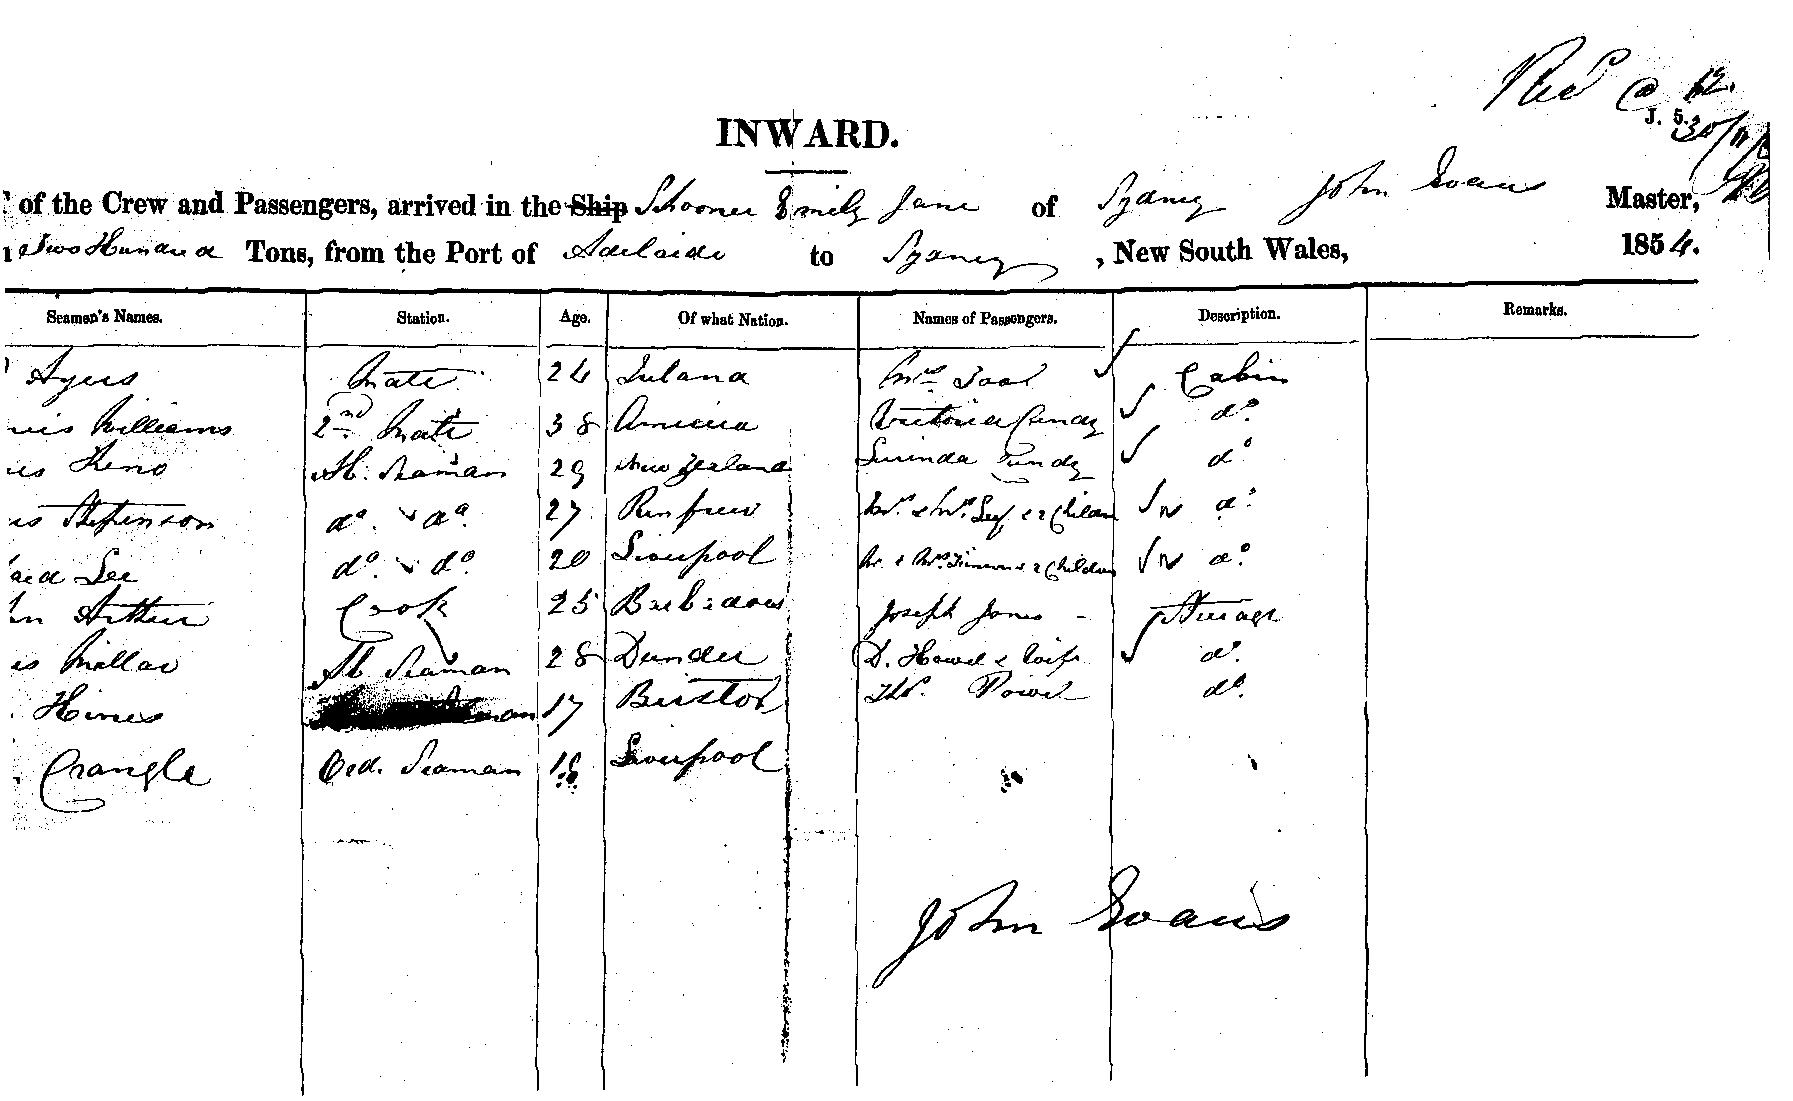 Recd @ 12.
J. 5.
30/11/
INWARD.
of the Crew and Passengers, arrived in the Ship Schooner Emily Jane of Sydney John Evans Master,
Two Hundred Tons, from the Port of Adelaide to Sydney, New South Wales, 1854.
Seamen's Names. Station. Age. Of what Nation. Names of Passengers. Description. Remarks.
Ayers Mate 24 Ireland Mrs Cabin
Williams 2nd Mate 38 America Victoria Cundy do.
29 New Zealand Lurinda Cundy do
Stepenson do. do. 27 Renfrew Mr. & Mrs. & 2 Children N do.
Lee do. do. 20 Liverpool Mr. & Mrs. & 2 Children N do.
Arthur Cook 25 Barbadoes Joseph Jones - Steerage
Millar Ab Seaman 28 Dundee D. Howel & Wife do.
Hines 17 Bristol Thos. Powel do.
Crangle Ord. Seaman 18 Liverpool
John Evans